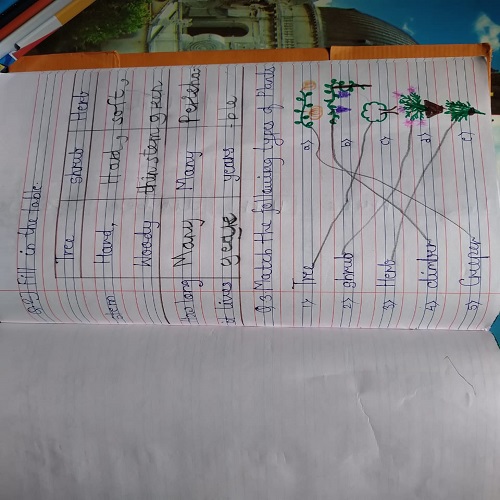 Q.2) Fill in the table.
Tree shrub Herb
stem Hard, Hard, soft,
Woody thin stem green
how long Many Many Perenni-
it lives years years ble
Q.3 Match the following types of Plants
1) Tree a)
2) shrub b)
3) Herb c)
4) climber d)
5) Creeper e)